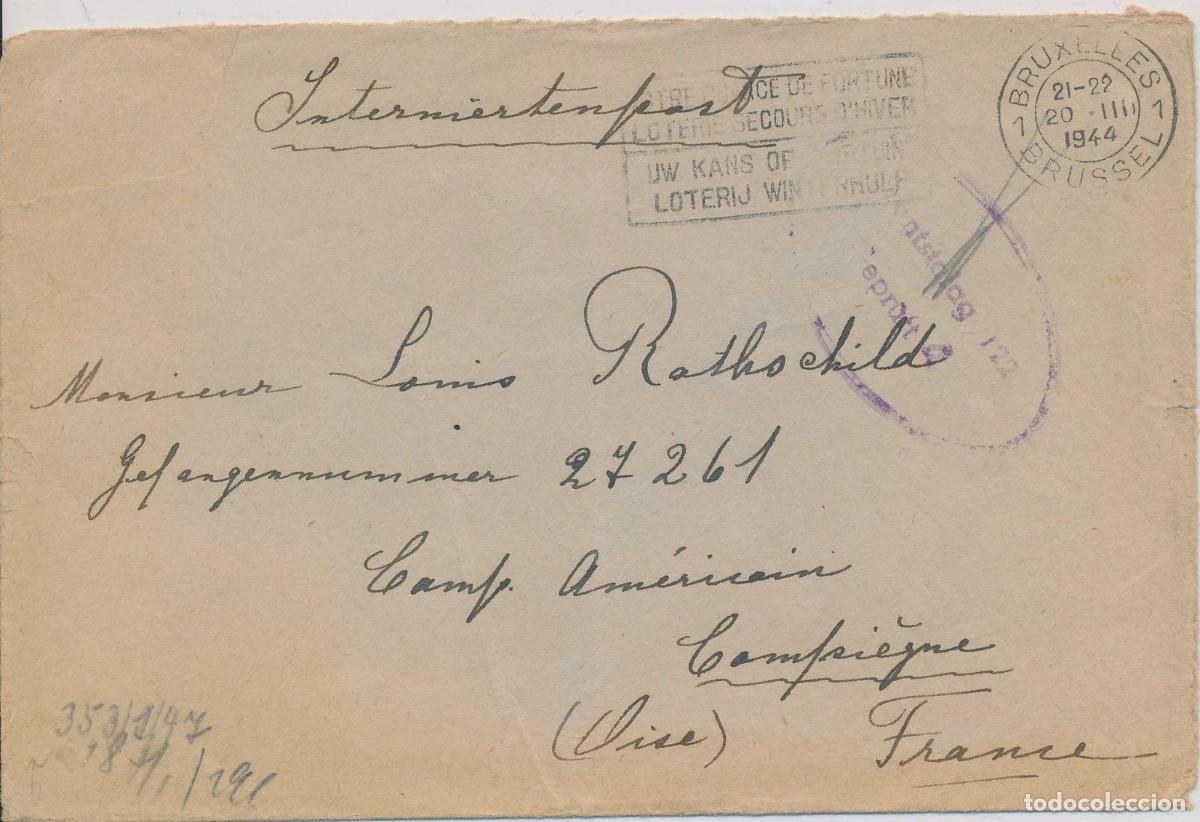 Interniertenpost
CHANCE DE FORTUNE
LOTERIE SECOURS D'HIVER
UW KANS OP
LOTERIJ WINTERHULP
BRUXELLES
1 1
21-22
20 · III
1944
BRUSSEL
Frontstalag 122
Geprüft
Monsieur Louis Rothschild
Gefangennummer 27261
Camp. Américain
Compiègne
(Oise) France
353/1/47
todocoleccion